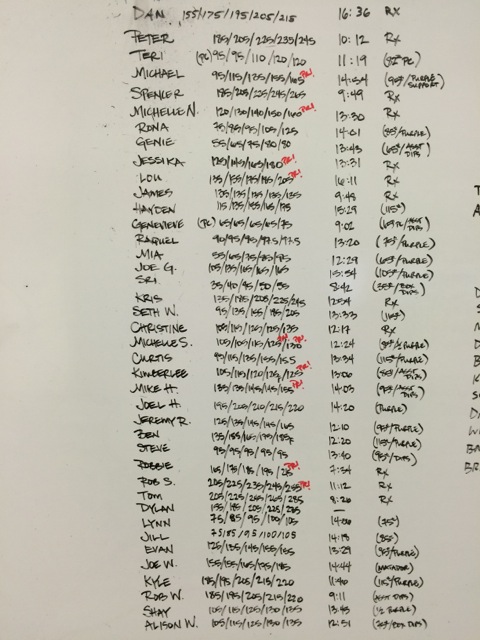 DAN 155/175/195/205/215 16:36 RX
PETER 185/205/225/235/245 10:12 RX
TERI (PC) 95/95/110/120/120 11:19 PC)
MICHAEL 95/115/135/155/165 PR! 14:54 PURPLE SUPPORT)
SPENCER 185/205/225/245/265 9:49 RX
MICHELLE N. 120/130/140/150/160 PR! 13:30 RX
RONA 75/85/95/105/125 14:01 /PURPLE)
GENIE 55/65/75/80/80 13:43 (65#/ASST DIPS
JESSIKA /145/163/180 PR! 13:31 RX
LOU 135/155/175/185/205 PR! 16:11 RX
JAMES 135/135/135/135/135 9:48 RX
HAYDEN 115/135/155/165/175 15:29 (115#)
GENEVIEVE (PC) 65/65/65/65/75 9:02 /ASST DIPS
RAQUEL 90/95/95/97.5/97.5 13:20 (75#/PURPLE)
MIA 55/65/75/85/95 12:29 (65#/PURPLE)
JOE G. 105/135/165/165/165 15:54 (105#/PURPLE)
SRI 35/40/45/50/55 8:42 (35#/BOX DIPS
KRIS 135/185/205/225/245 12:54 RX
SETH W. 95/135/155/185/205 13:33 (115#)
CHRISTINE 105/115/125/135/135 12:17 RX
MICHELLE S. 105/105/115/125/130 PR! PR! 12:24 PURPLE)
CURTIS 95/115/135/155/155 13:34 (115#/PURPLE)
KIMBERLEE 105/115/120/125/125 PR! 13:06 (85#/ASST DIPS)
MIKE H. 135/135/145/145/155 PR! 14:03 (95#/ASST DIPS
JOEL H. 195/205/210/215/220 14:20 (PURPLE)
JEREMY R. 125/135/145/145/165 12:10 (95#/PURPLE)
BEN 135/155/165/175/185 12:20 (115#/PURPLE)
STEVE 95/95/95/95/95 13:40 (95#/DIPS)
ROBBIE 165/175/185/195/215 PR! 7:34 RX
ROB S. 205/225/235/245/255 PR! 11:12 RX
TOM 205/225/245/265/285 8:26 RX
DYLAN 155/185/205/225/285 —
LYNN 75/85/95/100/105 14:06 (75#)
JILL 75/85/95/100/105 14:18 (85#)
EVAN 125/135/145/155/155 13:29 (95#/PURPLE)
JOE W. 155/155/165/175/185 14:44 (MATADOR)
KYLE 185/195/205/215/220 11:40 (115#/PURPLE)
ROB W. 185/195/205/215/220 9:11 (ASST DIPS)
SHAY 105/115/125/130/135 13:45 (1/2 PURPLE)
ALISON W. 105/115/125/130/135 12:51 /BOX DIPS)